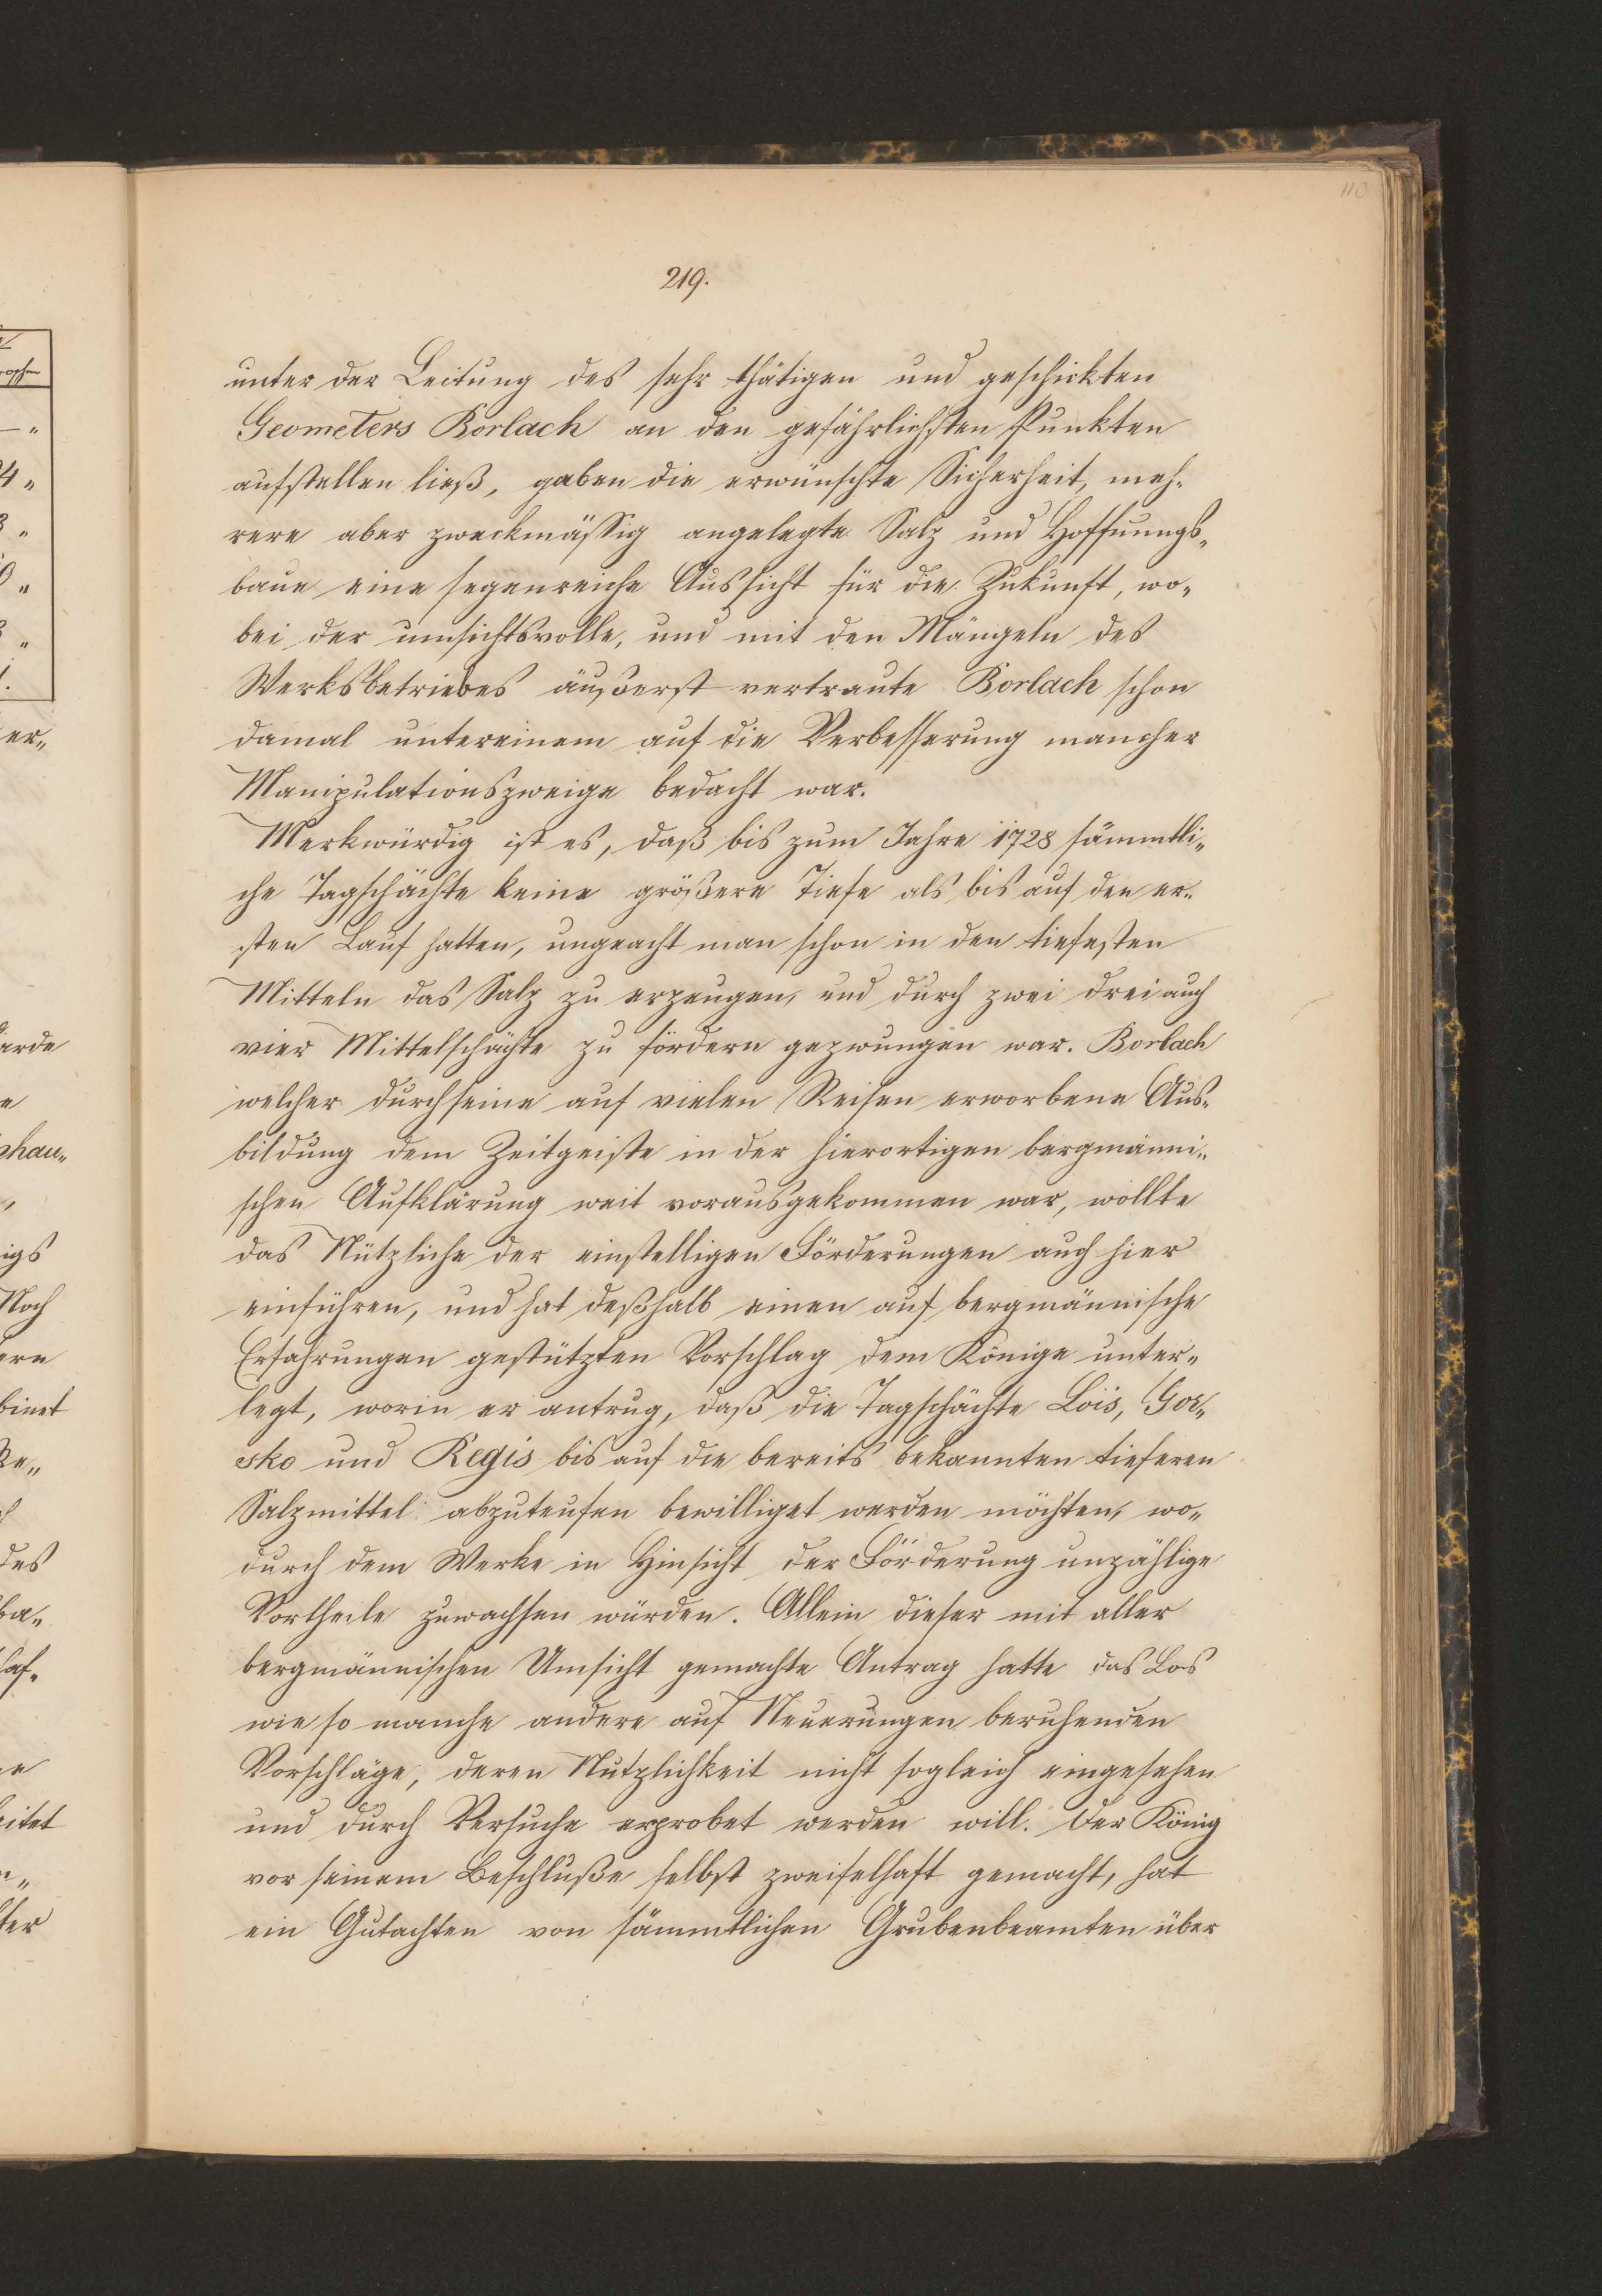 110
219.
unter der Leitung des sehr thätigen und geschickten
Geometers Borlach an den gefährlichsten Punkten
aufstellen ließ, gaben die erwünschte Sicherheit, meh-
rere aber zweckmässig angelegte Salz und Hoffnungs-
baue eine segenreiche Aussicht für die Zukunft, wo-
bei der umsichtsvolle, und mit den Mängeln des
Werksbetriebes äußerst vertraute Borlach schon
damal untereinem auf die Verbesserung mancher
Manipulationszweige bedacht war.
Merkwürdig ist es, daß bis zum Jahre 1728 sämmtli-
che Tagschächte keine größere Tiefe als bis auf den er-
sten Lauf hatten, ungeacht man schon in den tiefesten
Mitteln das Salz zu erzeugen, und durch zwei drei auch
vier Mittelschächte zu fördern gezwungen war. Borlach
welcher durch seine auf vielen Reisen erworbene Aus-
bildung dem Zeitgeiste in der hierortigen bergmänni-
schen Aufklärung weit vorausgekommen war, wollte
das Nützliche der einstelligen Förderungen auch hier
einführen, und hat deßhalb einen auf bergmännische
Erfahrungen gestützten Vorschlag dem Könige unter-
legt, worin er antrug, daß die Tagschächte Lois, Gor-
sko und Regis bis auf die bereits bekannten tieferen
Salzmittel abzuteufen bewilliget werden möchten, wo-
durch dem Werke in Hinsicht der Förderung unzählige
Vortheile zuwachsen würden. Allein dieser mit aller
bergmännischen Umsicht gemachte Antrag hatte das Los
wie so manche andere auf Neuerungen beruhenden
Vorschläge, deren Nutzlichkeit nicht sogleich eingesehen
und durch Versuche erprobet werden will. Der König
vor seinem Beschluße selbst zweifelhaft gemacht, hat
ein Gutachten von sämmtlichen Grubenbeamten über